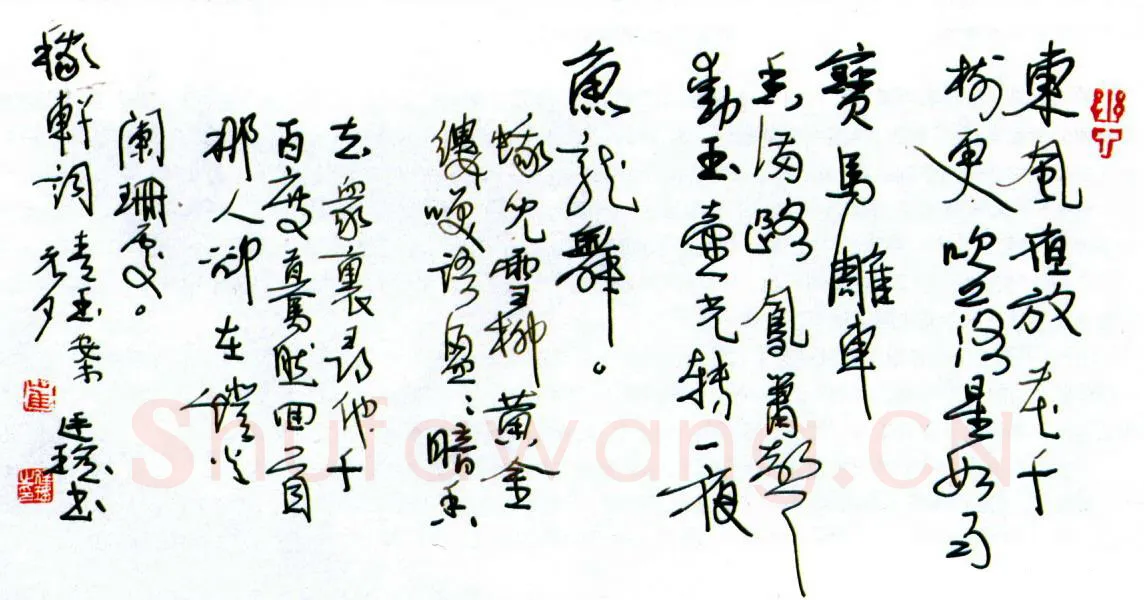 東風夜放花千
樹更吹落星如雨
寶馬雕車
香滿路鳳簫聲
動玉壺光轉一夜
魚龍舞。
蛾兒雪柳黃金
縷笑語盈盈暗香
去衆裏尋他千
百度驀然回首
那人卻在燈火
闌珊處。
稼軒詞 青玉案 元夕
書
崔
Shufawang.CN